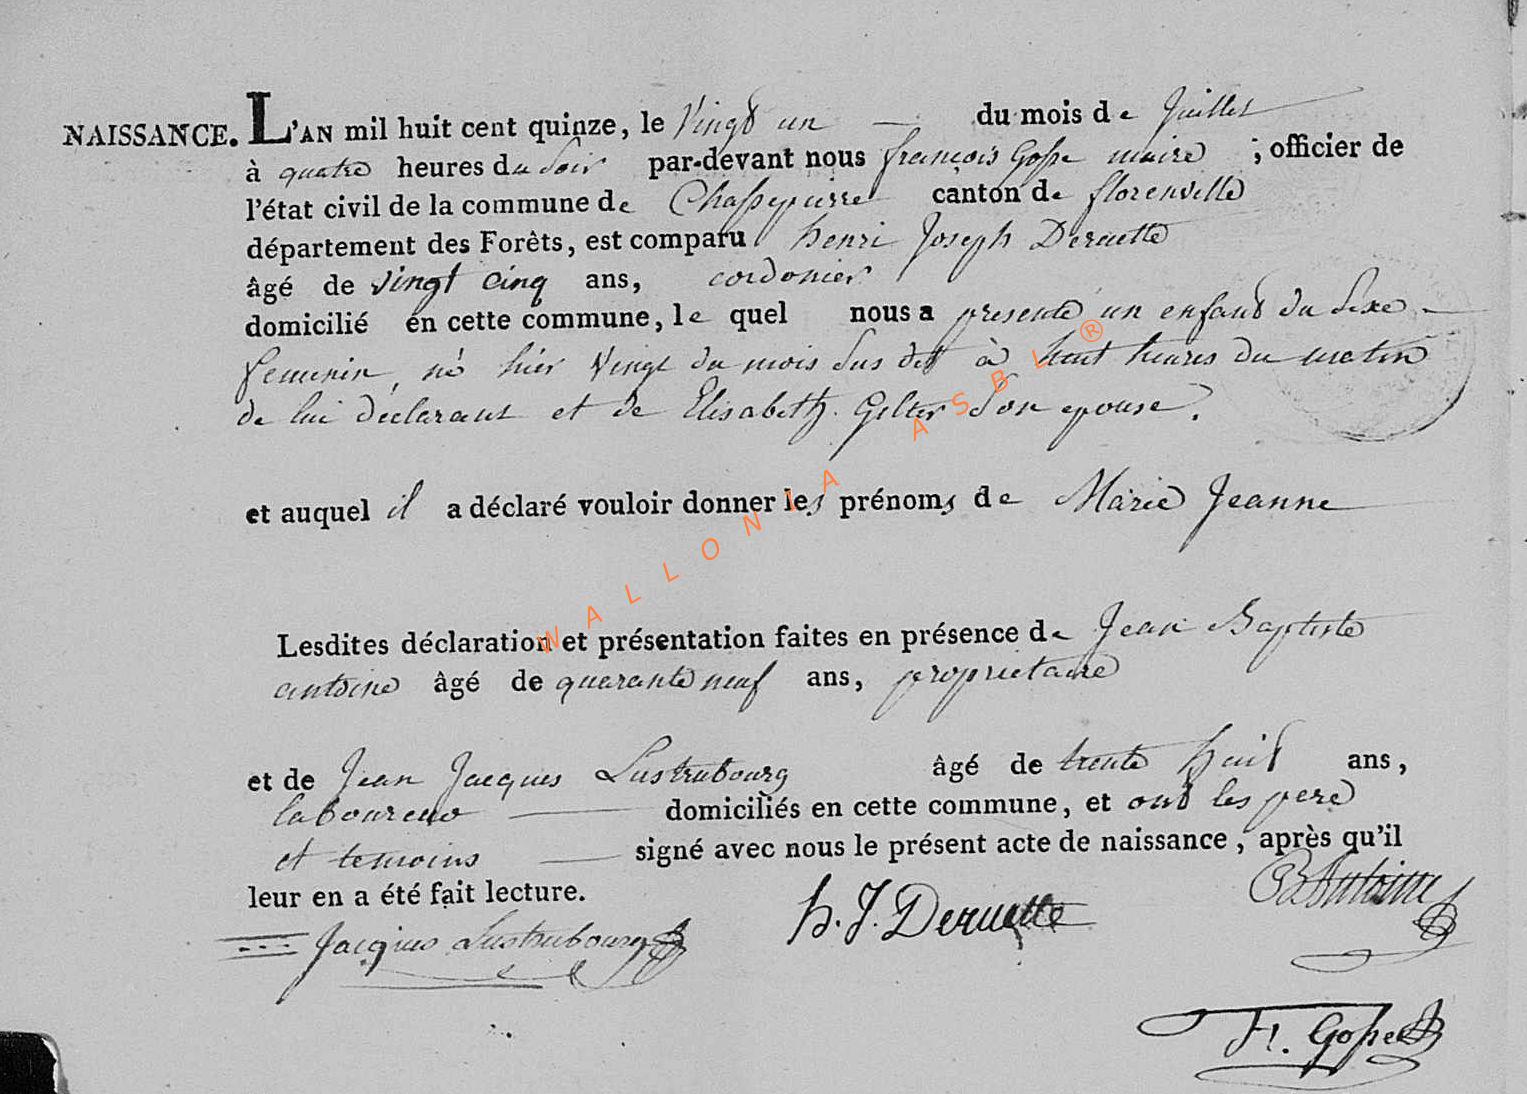 NAISSANCE. L'AN mil huit cent quinze, le Vingt un du mois de Juillet
à quatre heures du Soir par-devant nous françois Gosse maire ; officier de
l'état civil de la commune de Chassepierre canton de florenville
département des Forêts, est comparu henri Joseph Deruette
âgé de vingt cinq ans, cordonier
domicilié en cette commune, le quel nous a presenté un enfant du Sexe
feminin, né hier Vingt du mois Sus dit à huit heures du matin
de lui déclarant et de Elisabeth Gelter Son epouse.
et auquel il a déclaré vouloir donner les prénoms de Marie Jeanne
Lesdites déclaration et présentation faites en présence de Jean Baptiste
antoine âgé de quarante neuf ans, proprietaire
et de Jean Jacques Lustrubourg âgé de trente huit ans,
laboureur domiciliés en cette commune, et ont les pere
et temoins signé avec nous le présent acte de naissance, après qu'il
leur en a été fait lecture.
Jacques Lustrubourg h. J. Deruette JB Antoine
Fr. Gosse
WALLONIA ASBL ®